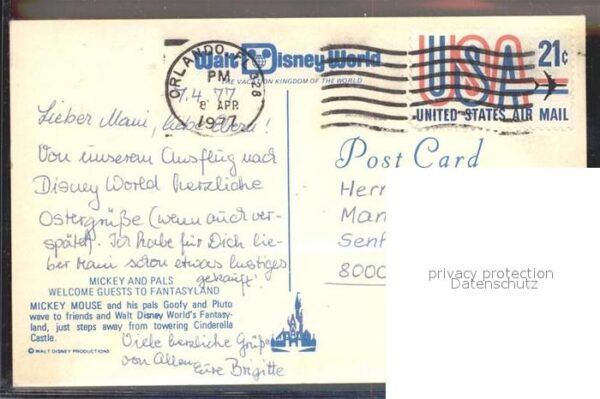 Walt Disney World
THE VACATION KINGDOM OF THE WORLD
ORLANDO
PM
8 APR
1977
USA 21c
UNITED STATES AIR MAIL
7.4.77
Lieber Mani, liebe Eltern!
Von unserem Ausflug nach
Disney World herzliche
Ostergrüße (wenn auch ver-
spätet). Ich habe für Dich lie-
ber Mani schon etwas lustiges
gekauft.
MICKEY AND PALS
WELCOME GUESTS TO FANTASYLAND
MICKEY MOUSE and his pals Goofy and Pluto
wave to friends and Walt Disney World's Fantasy-
land, just steps away from towering Cinderella
Castle.
© WALT DISNEY PRODUCTIONS
Viele herzliche Grüße
von Allen
Eure Brigitte
Post Card
Herr
Man
Senf
8000
privacy protection
Datenschutz